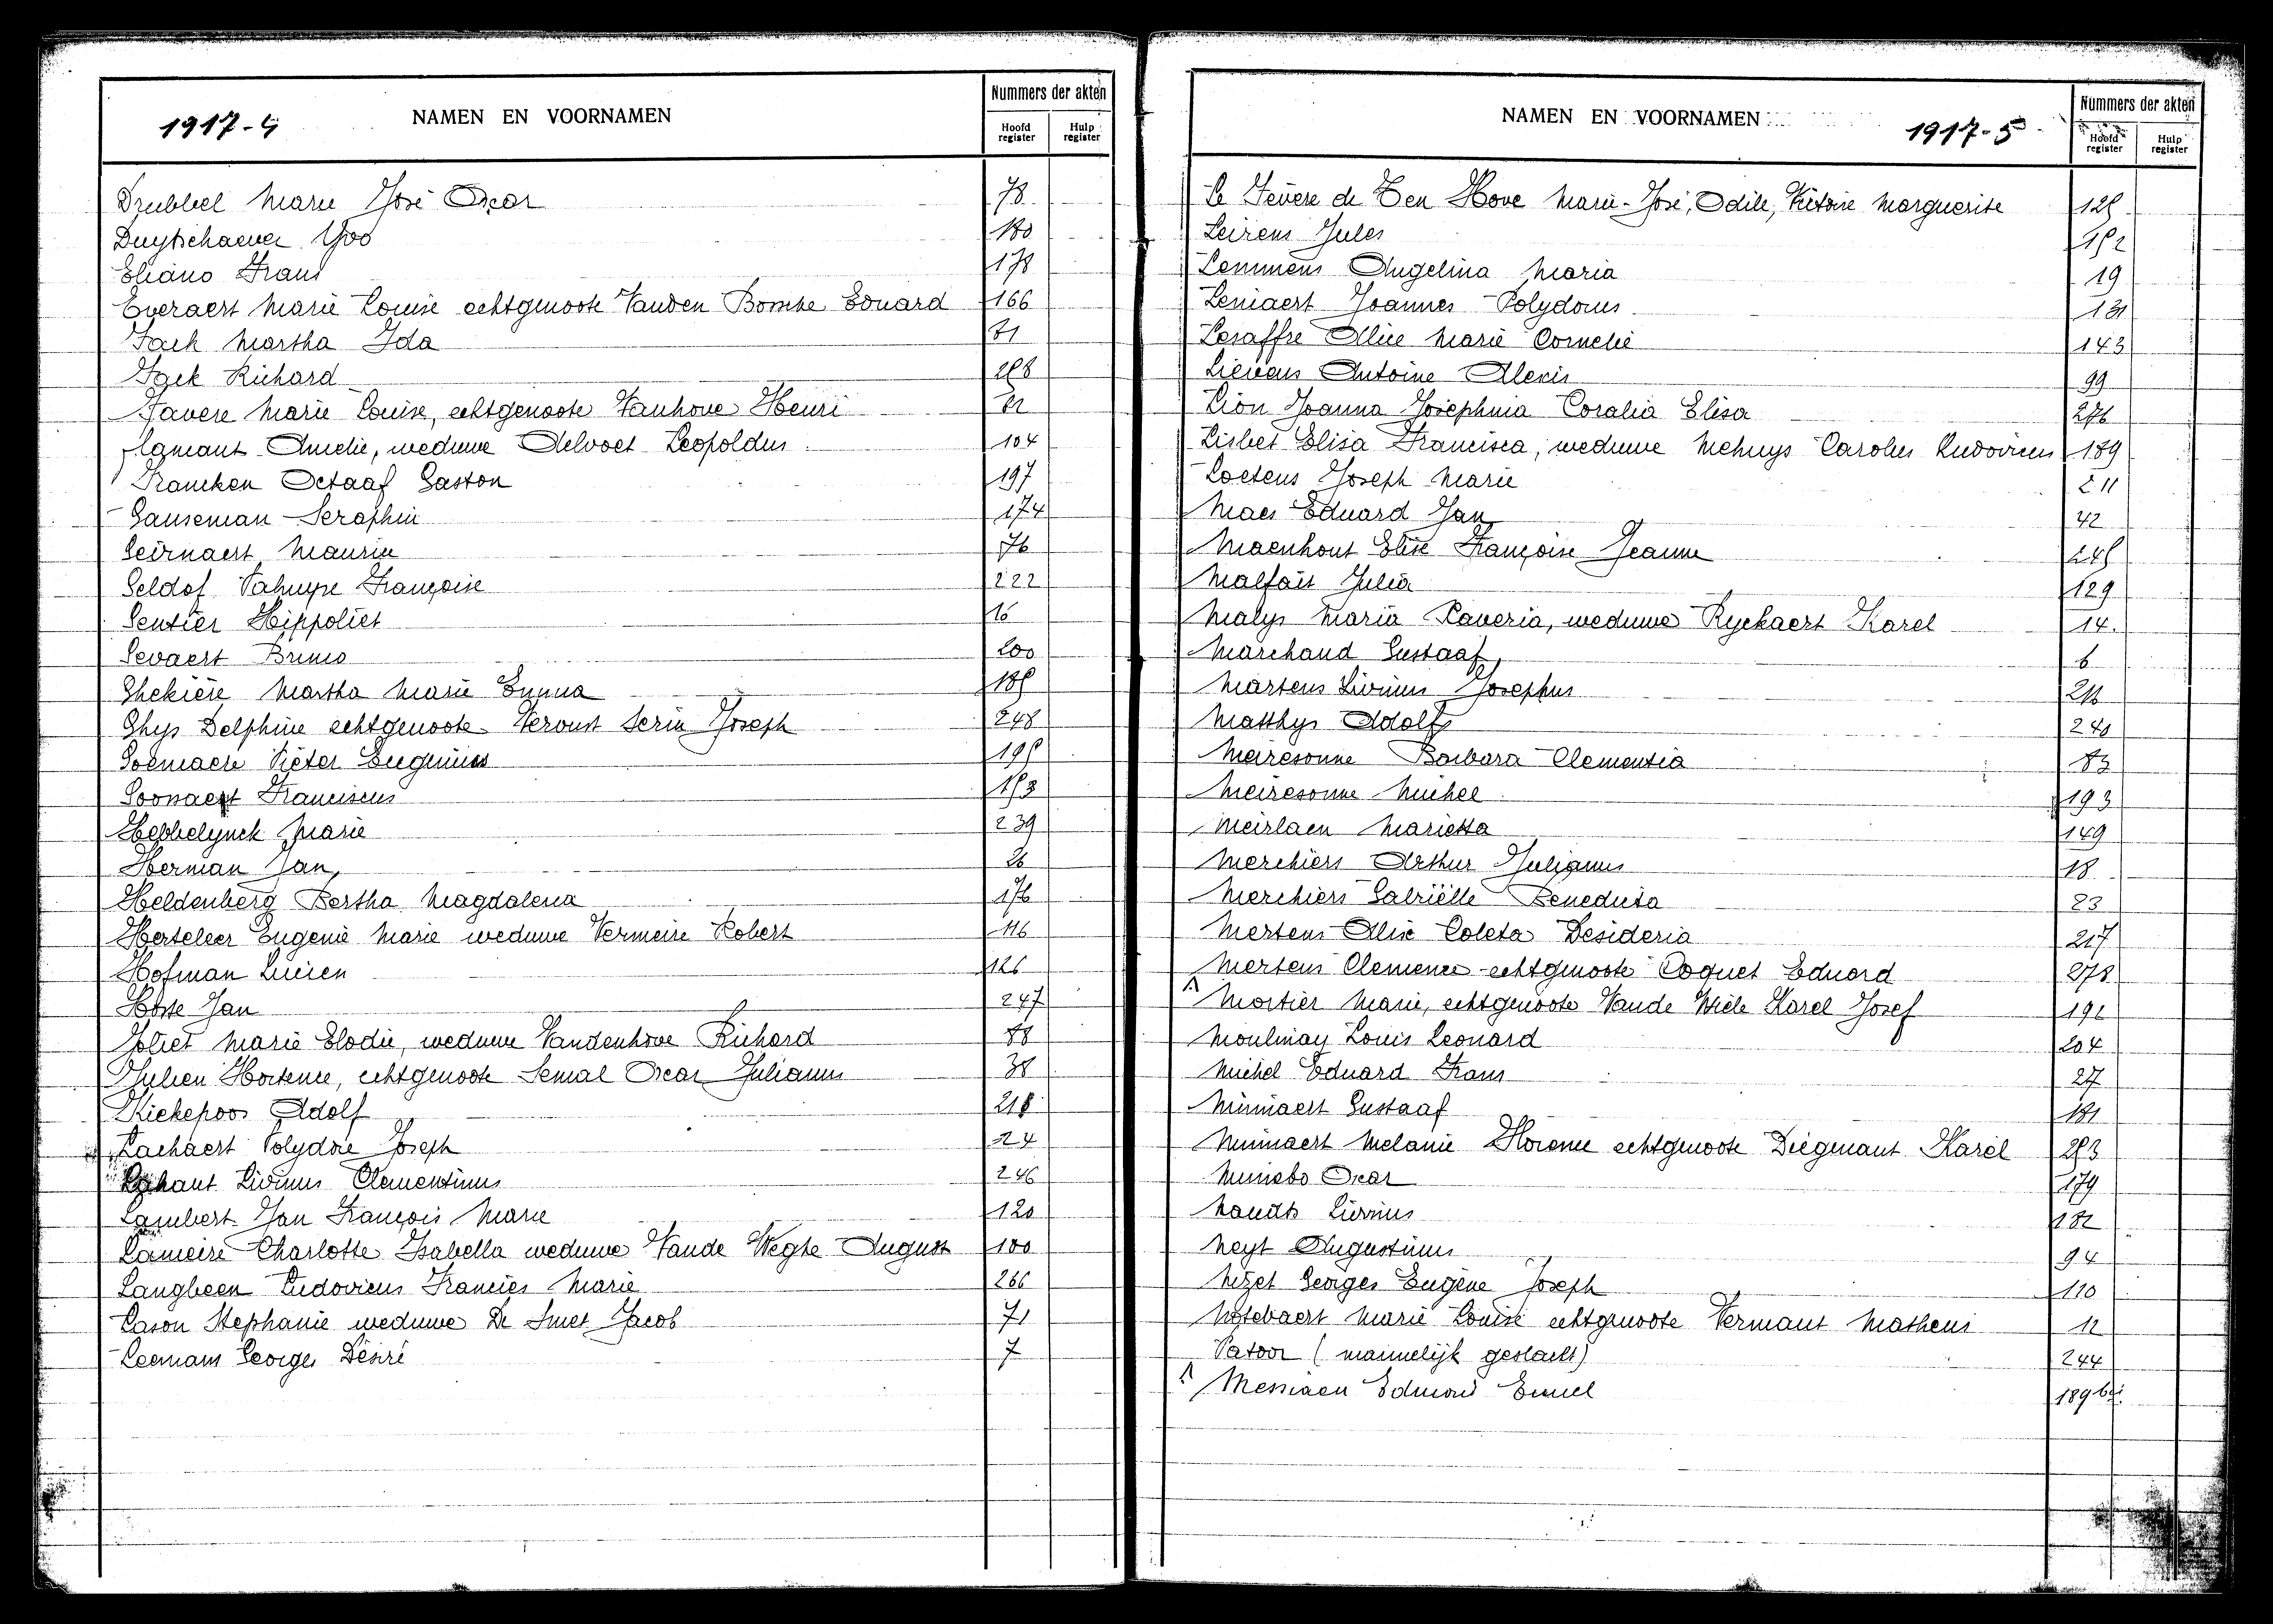 1917-4
NAMEN EN VOORNAMEN
Nummers der akten
Hoofd register
Hulp register
Drubbel Marie José Oscar 78
Duytschaever Yvo 180
Eliano Frans 178
Everaert Marie Louise echtgenoote Vanden Bossche Eduard 166
Fack Martha Ida 81
Fack Richard 258
Favere Marie Louise, echtgenoote Vanhove Henri 82
Flamant Amelie, weduwe Delvoet Leopoldus 104
Francken Octaaf Gaston 197
Ganseman Seraphin 174
Geirnaert Maurice 76
Geldof Françoise 222
Gentier Hippoliet 16
Gevaert Bruno 200
Ghekière Martha Marie Emma 185
Ghys Delphine echtgenoote Vervust Serin Joseph 248
Goemaere Pieter Eugenius 195
Goossaert Franciscus 153
Hebbelynck Marie 239
Herman Jan 26
Heldenberg Bertha Magdalena 176
Herteleer Eugenie Marie weduwe Vermeire Robert 116
Hofman Lucien 126
Hoste Jan 247
Joliet Marie Elodie, weduwe Vandenhove Richard 88
Julien Hortence, echtgenoote Semal Oscar Julianus 38
Kiekepoos Adolf 218
Lachaert Polydore Joseph 24
Lahaut Livinus Clementinus 246
Lambert Jan François Marie 120
Lameire Charlotte Isabella weduwe Vande Weghe August 100
Langbeen Ludovicus Francies Marie 266
Lason Stephanie weduwe De Smet Jacob 71
Leemans Georges Désiré 7
NAMEN EN VOORNAMEN
1917-5
Nummers der akten
Hoofd register
Hulp register
Le Fevere de Ten Hove Marie-José, Odile, Victoire Marguerite 125
Leirens Jules 152
Lemmens Angelina Maria 19
Leniaert Joannes Polydorus 131
Lesaffre Alice Marie Cornelie 143
Lievens Antoine Alexis 99
Lion Joanna Josephina Coralia Elisa 276
Lisbet Elisa Francisca, weduwe Mehuys Carolus Ludovicus 189
Loetens Joseph Marie 211
Maes Eduard Jan 42
Maenhout Elise Françoise Jeanne 245
Malfait Julia 129
Malys Maria Xaveria, weduwe Ryckaert Karel 14
Marchand Gustaaf 6
Martens Livinus Josephus 216
Matthys Adolf 240
Meiresonne Barbara Clementia 83
Meiresonne Michel 193
Meirlaen Marietta 149
Merchiers Arthur Julianus 18
Merchiers Gabriëlle Benedicta 23
Mertens Alix Coleta Desideria 217
Mertens Clemence echtgenoote Coquet Eduard 278
Mortier Marie, echtgenoote Vande Wiele Karel Josef 192
Moulmay Louis Leonard 204
Michel Eduard Frans 27
Minnaert Gustaaf 181
Minnaert Melanie Florence echtgenoote Diegenant Karel 253
Minsebo Oscar 179
Naudts Livinus 182
Neyt Augustinus 94
Nizet Georges Eugène Joseph 110
Notebaert Marie Louise echtgenoote Vermaut Matheus 12
Patoor (mannelijk geslacht) 244
Messiaen Edmond Emiel 189 bis